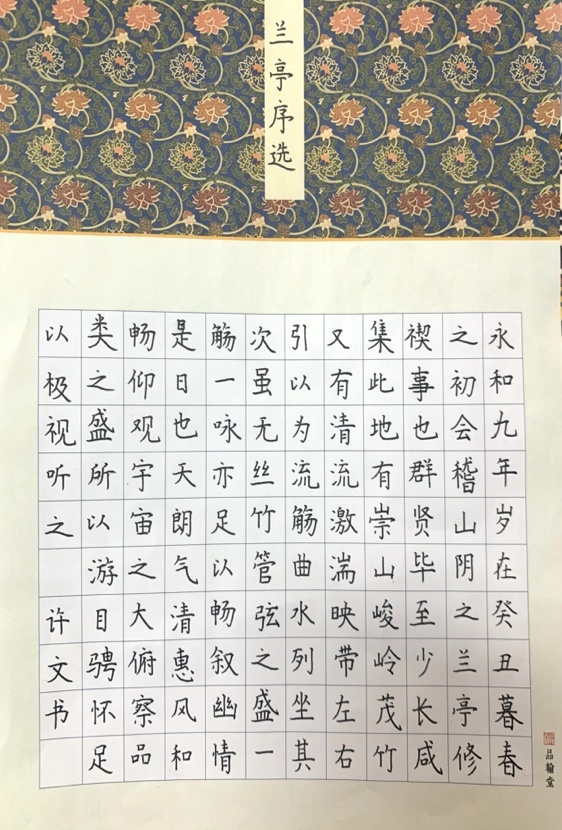 兰亭序选
永和九年岁在癸丑暮春
之初会稽山阴之兰亭修
禊事也群贤毕至少长咸
集此地有崇山峻岭茂竹
又有清流激湍映带左右
引以为流觞曲水列坐其
次虽无丝竹管弦之盛一
觞一咏亦足以畅叙幽情
是日也天朗气清惠风和
畅仰观宇宙之大俯察品
类之盛所以游目骋怀足
以极视听之 许文书
品翰堂